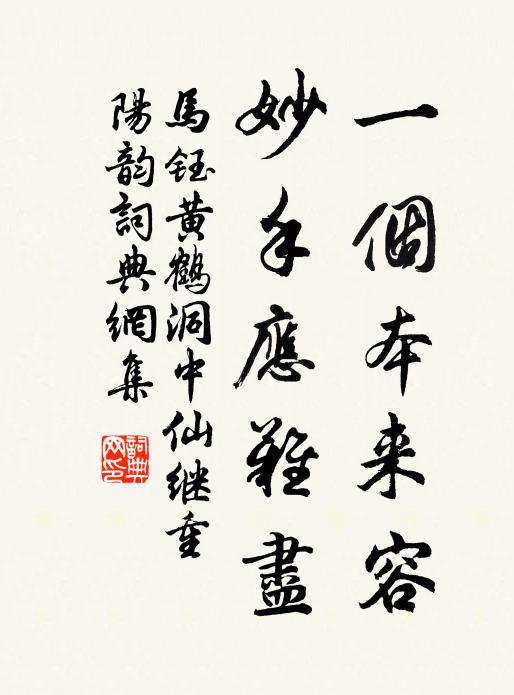 一個本来容
妙手應難盡
馬鈺黄鶴洞中仙继重
陽韵詞典網集
詞典网印